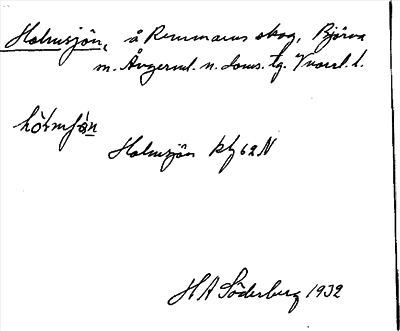 Holmsjön, å Remmarns skog, Björna
m. Ångerml. n. doms. tg. Vnorrl. l.
Holmsjön kbl 62 N
H A Söderberg 1932